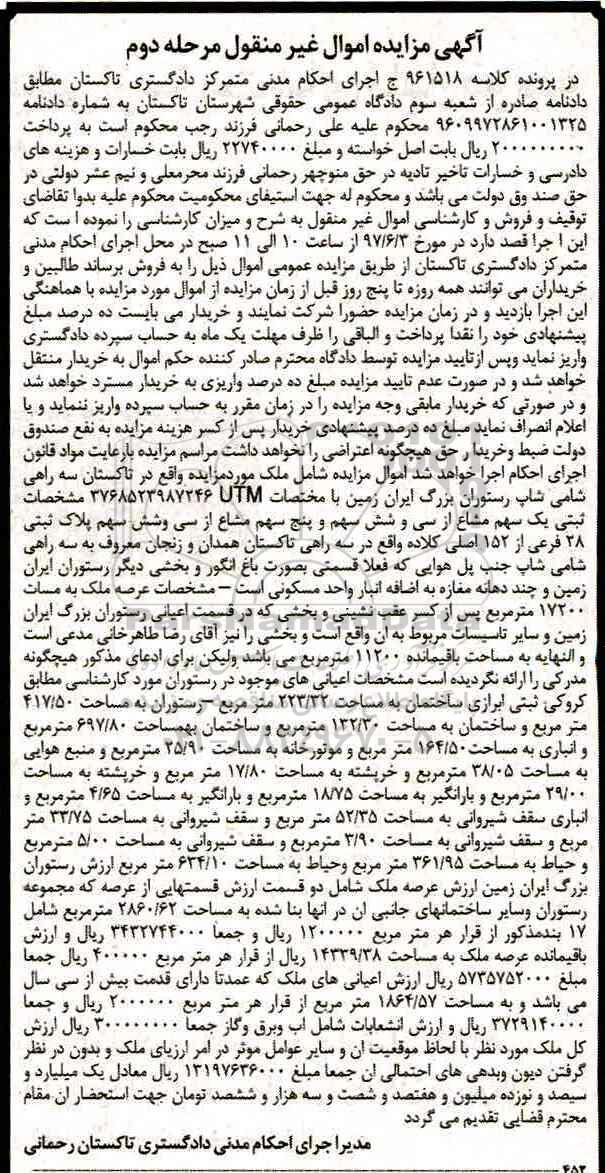 آگهی مزایده اموال غیر منقول مرحله دوم
در پرونده کلاسه ۹۶۱۵۱۸ ج اجرای احکام مدنی متمرکز دادگستری تاکستان مطابق
دادنامه صادره از شعبه سوم دادگاه عمومی حقوقی شهرستان تاکستان به شماره دادنامه
۹۶۰۹۹۷۲۸۶۱۰۰۱۳۲۵ محکوم علیه علی رحمانی فرزند رجب محکوم است به پرداخت
۲۰۰۰۰۰۰۰۰۰ ریال بابت اصل خواسته و مبلغ ۲۲۷۴۰۰۰۰ ریال بابت خسارات و هزینه های
دادرسی و خسارات تاخیر تادیه در حق منوچهر رحمانی فرزند محرمعلی و نیم عشر دولتی در
حق صند وق دولت می باشد و محکوم له جهت استیفای محکومیت محکوم علیه بدوا تقاضای
توقیف و فروش و کارشناسی اموال غیر منقول به شرح و میزان کارشناسی را نموده ا ست که
این ا جرا قصد دارد در مورخ ۹۷/۶/۳ از ساعت ۱۰ الی ۱۱ صبح در محل اجرای احکام مدنی
متمرکز دادگستری تاکستان از طریق مزایده عمومی اموال ذیل را به فروش برساند طالبین و
خریداران می توانند همه روزه تا پنج روز قبل از زمان مزایده از اموال مورد مزایده با هماهنگی
این اجرا بازدید و در زمان مزایده حضورا شرکت نمایند و خریدار می بایست ده درصد مبلغ
پیشنهادی خود را نقدا پرداخت و الباقی را ظرف مهلت یک ماه به حساب سپرده دادگستری
واریز نماید وپس ازتایید مزایده توسط دادگاه محترم صادر کننده حکم اموال به خریدار منتقل
خواهد شد و در صورت عدم تایید مزایده مبلغ ده درصد واریزی به خریدار مسترد خواهد شد
و در صورتی که خریدار مابقی وجه مزایده را در زمان مقرر به حساب سپرده واریز ننماید و یا
اعلام انصراف نماید مبلغ ده درصد پیشنهادی خریدار پس از کسر هزینه مزایده به نفع صندوق
دولت ضبط وخریدار حق هیچگونه اعتراضی را نخواهد داشت مراسم مزایده بارعایت مواد قانون
اجرای احکام اجرا خواهد شد اموال مزایده شامل ملک موردمزایده واقع در تاکستان سه راهی
شامی شاپ رستوران بزرگ ایران زمین با مختصات UTM ۳۷۶۸۵۲۳۹۸۷۲۴۶ مشخصات
ثبتی یک سهم مشاع از سی و شش سهم و پنج سهم مشاع از سی وشش سهم پلاک ثبتی
۲۸ فرعی از ۱۵۲ اصلی کلاده واقع در سه راهی تاکستان همدان و زنجان معروف به سه راهی
شامی شاپ جنب پل هوایی که فعلا قسمتی بصورت باغ انگور و بخشی دیگر رستوران ایران
زمین و چند دهانه مغازه به اضافه انبار واحد مسکونی است – مشخصات عرصه ملک به مسات
۱۷۲۰۰ مترمربع پس از کسر عقب نشینی و بخشی که در قسمت اعیانی رستوران بزرگ ایران
زمین و سایر تاسیسات مربوط به آن واقع است و بخشی را نیز آقای رضا طاهرخانی مدعی است
و النهایه به مساحت باقیمانده ۱۱۲۰۰ مترمربع می باشد ولیکن برای ادعای مذکور هیچگونه
مدرکی را ارائه نگردیده است مشخصات اعیانی های موجود در رستوران مورد کارشناسی مطابق
کروکی ثبتی ابرازی ساختمان به مساحت ۲۲۳/۳۲ متر مربع –رستوران به مساحت ۴۱۷/۵۰
متر مربع و ساختمان به مساحت ۱۳۲/۳۰ مترمربع و ساختمان بهمساحت ۶۹۷/۸۰ مترمربع
و انباری به مساحت۱۶۴/۵۰ متر مربع و موتورخانه به مساحت ۲۵/۹۰ مترمربع و منبع هوایی
به مساحت ۳۸/۰۵ مترمربع و خرپشته به مساحت ۱۷/۸۰ متر مربع و خرپشته به مساحت
۲۹/۰۰ مترمربع و بارانگیر به مساحت ۱۸/۷۵ مترمربع و بارانگیر به مساحت ۴/۶۵ مترمربع و
انباری سقف شیروانی به مساحت ۵۲/۳۵ متر مربع و سقف شیروانی به مساحت ۳۳/۷۵ متر
مربع و سقف شیروانی به مساحت ۳/۹۰ مترمربع و سقف شیروانی به مساحت ۵/۰۰ مترمربع
و حیاط به مساحت ۳۶۱/۹۵ متر مربع وحیاط به مساحت ۶۳۴/۱۰ متر مربع ارزش رستوران
بزرگ ایران زمین ارزش عرصه ملک شامل دو قسمت ارزش قسمتهایی از عرصه که مجموعه
رستوران وسایر ساختمانهای جانبی ان در انها بنا شده به مساحت ۲۸۶۰/۶۲ مترمربع شامل
۱۷ بندمذکور از قرار هر متر مربع ۱۲۰۰۰۰۰ ریال و جمعا ۳۴۳۲۷۴۴۰۰۰ ریال و ارزش
باقیمانده عرصه ملک به مساحت ۱۴۳۳۹/۳۸ ریال از قرار هر متر مربع ۴۰۰۰۰۰ ریال جمعا
مبلغ ۵۷۳۵۷۵۲۰۰۰ ریال ارزش اعیانی های ملک که عمدتا دارای قدمت بیش از سی سال
می باشد و به مساحت ۱۸۶۴/۵۷ متر مربع از قرار هر متر مربع ۲۰۰۰۰۰۰ ریال و جمعا
۳۷۲۹۱۴۰۰۰۰ ریال و ارزش انشعابات شامل اب وبرق وگاز جمعا ۳۰۰۰۰۰۰۰۰ ریال ارزش
کل ملک مورد نظر با لحاظ موقعیت ان و سایر عوامل موثر در امر ارزیای ملک و بدون در نظر
گرفتن دیون وبدهی های احتمالی ان جمعا مبلغ ۱۳۱۹۷۶۳۶۰۰۰ ریال معادل یک میلیارد و
سیصد و نوزده میلیون و هفتصد و شصت و سه هزار و ششصد تومان جهت استحضار ان مقام
محترم قضایی تقدیم می گردد
مدیرا جرای احکام مدنی دادگستری تاکستان رحمانی
۴۵۲